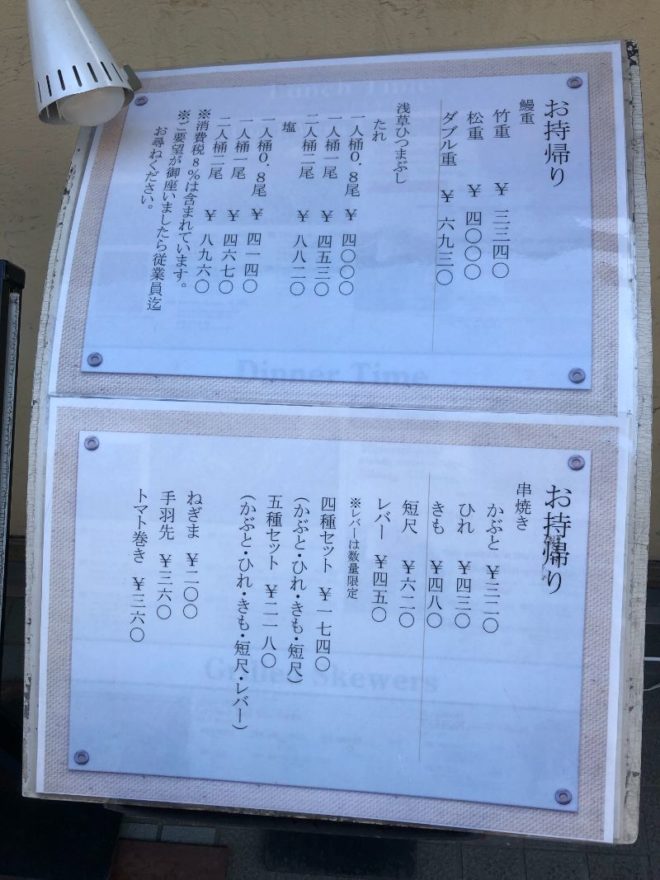 お持帰り
鰻重
竹重 ¥ 三三四〇
松重 ¥ 四〇〇〇
ダブル重 ¥ 六九三〇
浅草ひつまぶし
たれ
一人桶0.8尾 ¥ 四〇〇〇
一人桶一尾 ¥ 四五三〇
二人桶二尾 ¥ 八八二〇
塩
一人桶0.8尾 ¥ 四一四〇
一人桶一尾 ¥ 四六七〇
二人桶二尾 ¥ 八九六〇
※消費税8%は含まれています。
※ご要望が御座いましたら従業員迄
お尋ねください。
Lunch Time
Dinner Time
お持帰り
串焼き
かぶと ¥三二〇
ひれ ¥四三〇
きも ¥四八〇
短尺 ¥六二〇
レバー ¥四五〇
※レバーは数量限定
四種セット ¥一七四〇
(かぶと・ひれ・きも・短尺)
五種セット ¥二一八〇
(かぶと・ひれ・きも・短尺・レバー)
ねぎま ¥二〇〇
手羽先 ¥三六〇
トマト巻き ¥三六〇
Grilled Skewers